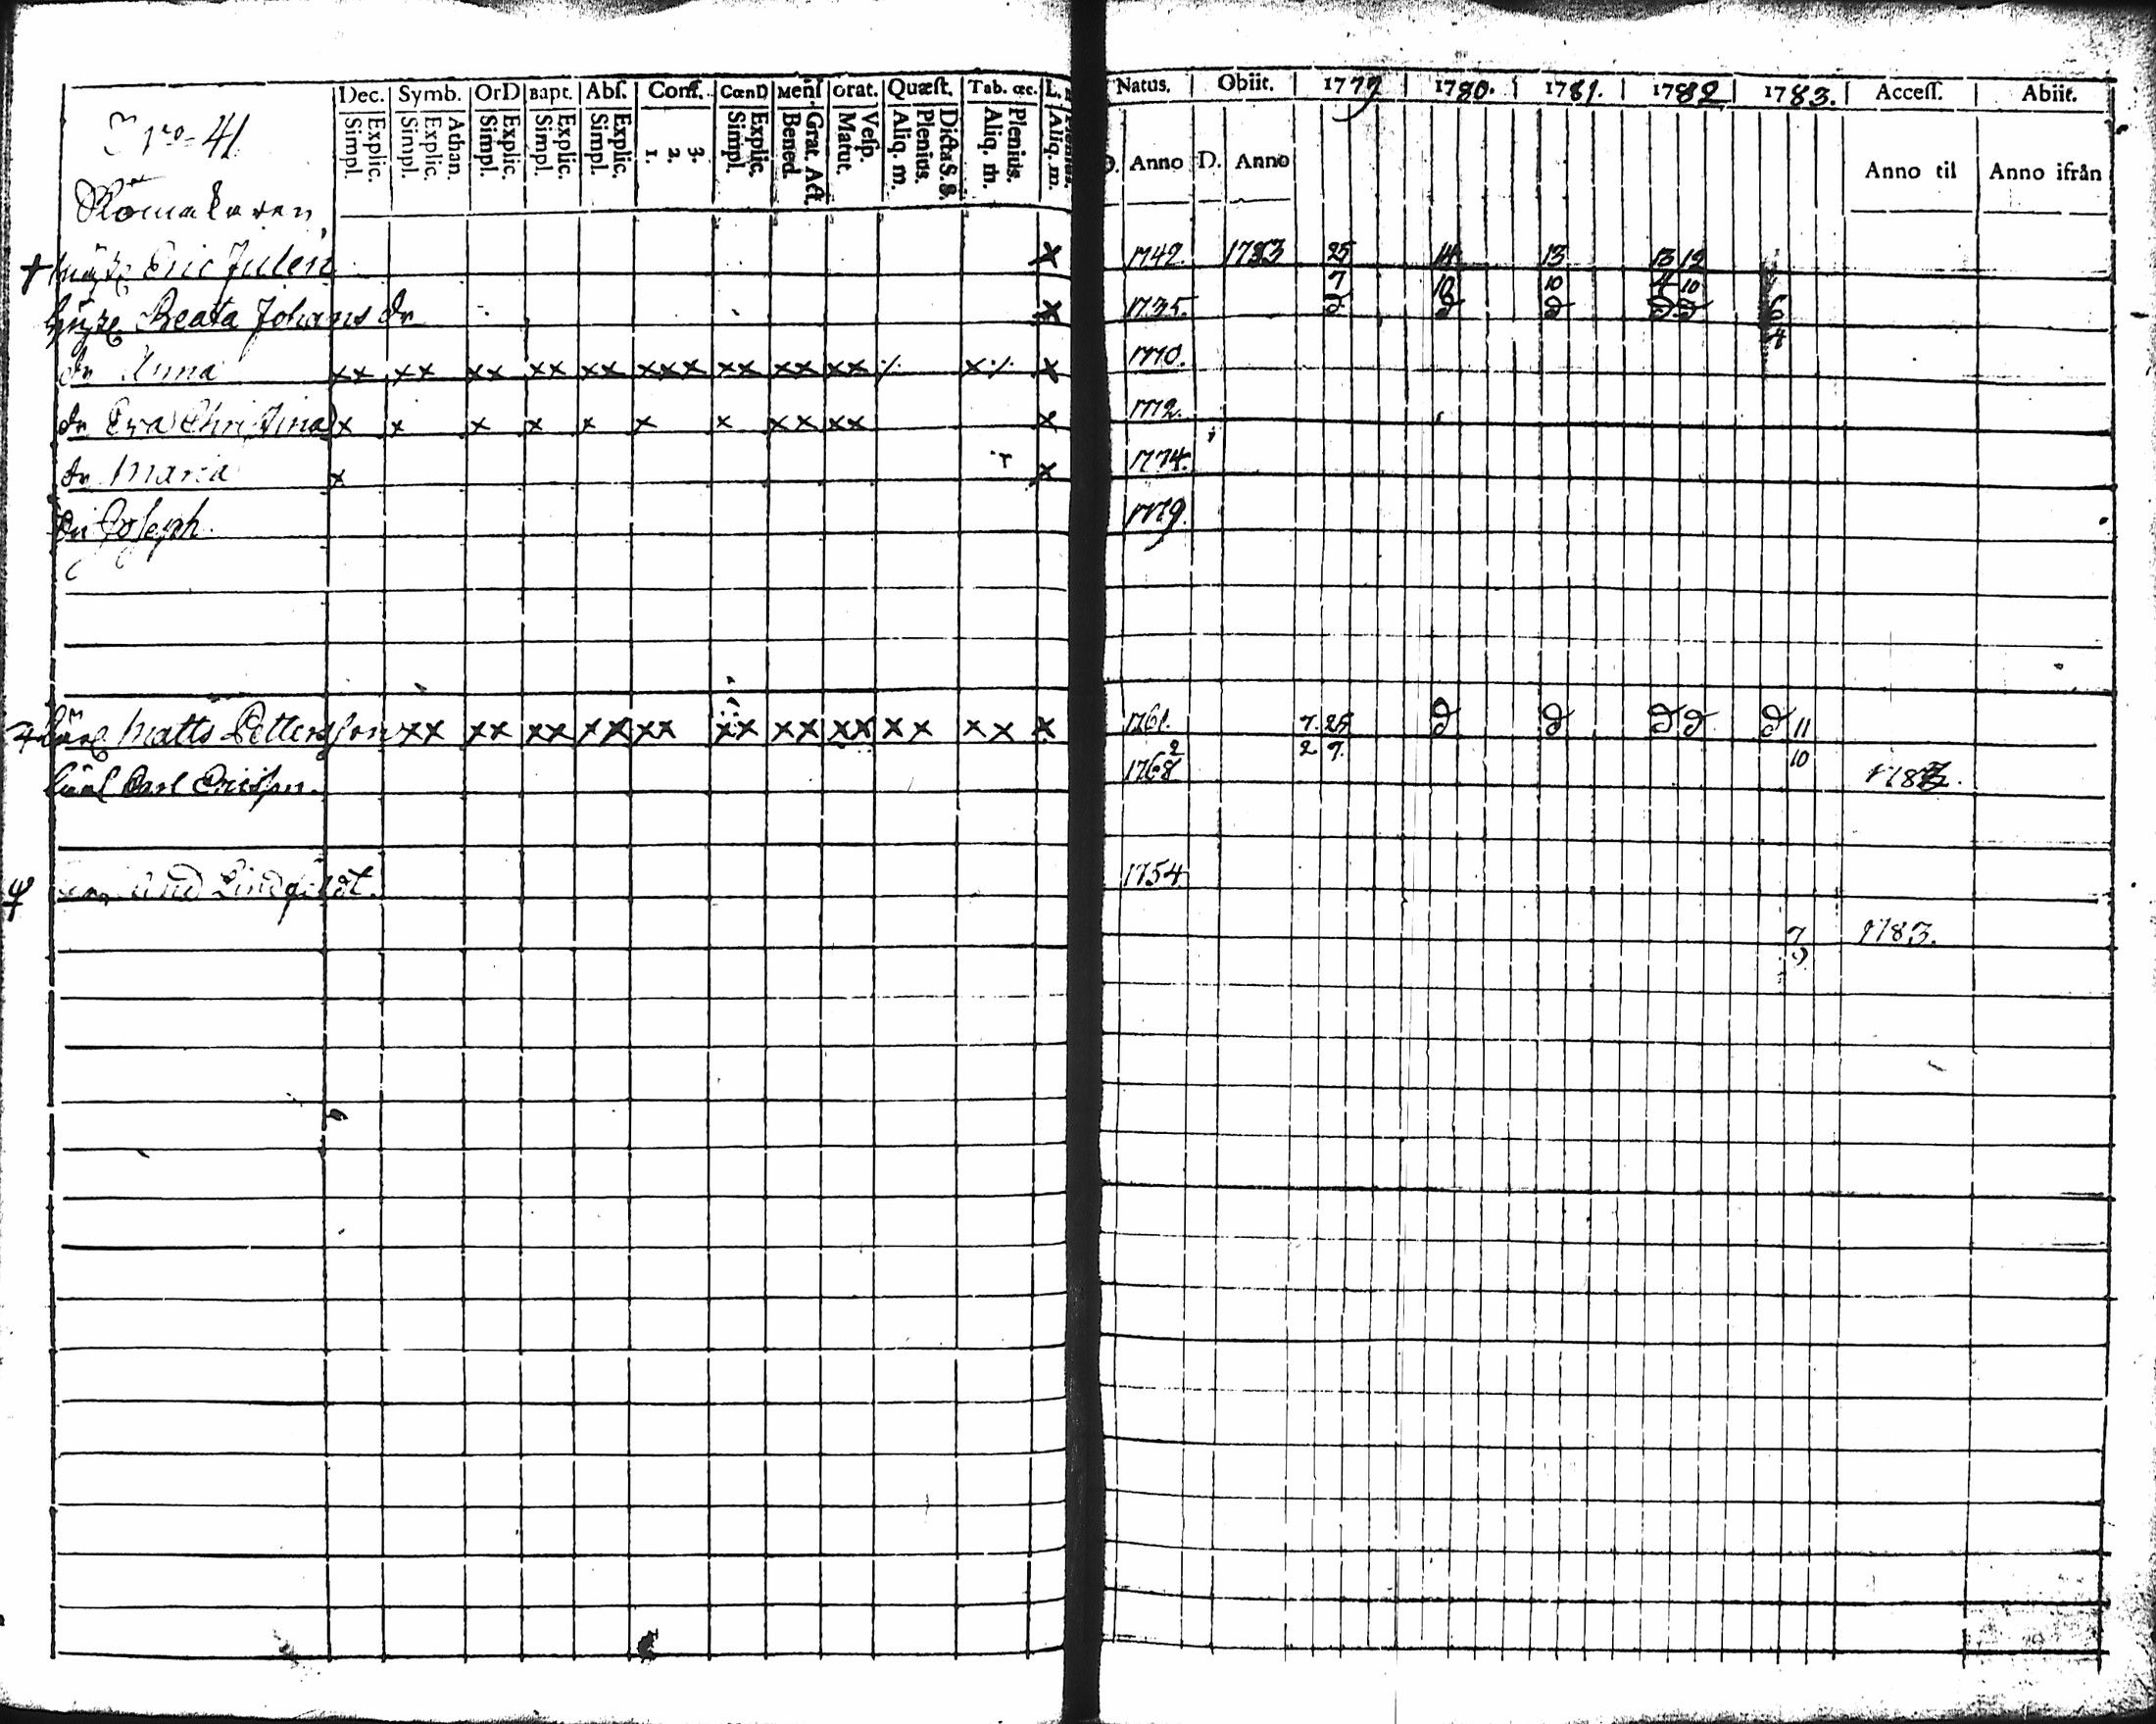 Dec. Symb. OrD Bapt. Abſ. Conf. CœnD Menſ. Grat. Quæſt. Tab. œc. L.
Simpl. Explic. Simpl. Explic. Athan. Simpl. Explic. Simpl. Explic. Simpl. Explic. 1. 2. 3. Simpl. Explic. Bened. Grat. Act. Matut. Veſp. Aliq. m. Plenius. Dicta S. S. Aliq. m. Plenius. Aliq. m.
Natus. Obiit. 1779 1780. 1781. 1782 1783. Acceſſ. Abiit.
Anno D. Anno Anno til Anno ifrån
No 41
Eric Julen x 1742 1783 25 14 13 13 12
7 10 10 4 10
Beata Johans dr x 1735. D D D D D 6
4
dr Anna xx xx xx xx xx xxx xx xx xx x x 1770.
dr Eva Christina x x x x x x x xx xx x 1772.
dr Maria x x 1774.
Joseph 1779.
Matts Pettersson xx xx xx xx xx xx xx xx xx xx x 1761. 7. 25 D D D D D 11
2 9 10
Carl Ericsson. 1768
Lindqvist. 1754
7 1783.
9